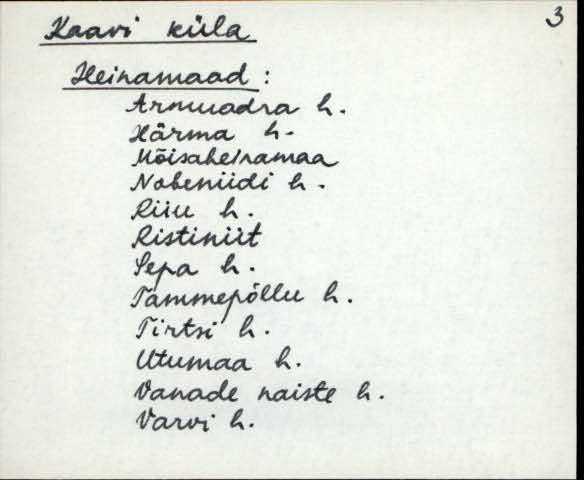 3
Kaavi küla
Heinamaad:
Armuadra h.
Härma h.
Mõisaheinamaa
Nabeniidi h.
Riiu h.
Ristiniit
Sepa h.
Tammepõllu h.
Tirtsi h.
Utumaa h.
Vanade naiste h.
Varvi h.